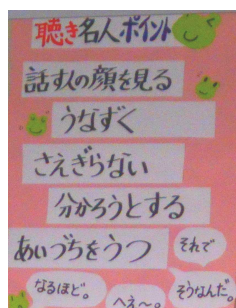 聴き名人ポイント
話す人の顔を見る
うなずく
さえぎらない
分かろうとする
あいづちをうつ
それで
なるほど。
へえ～。
そうなんだ。